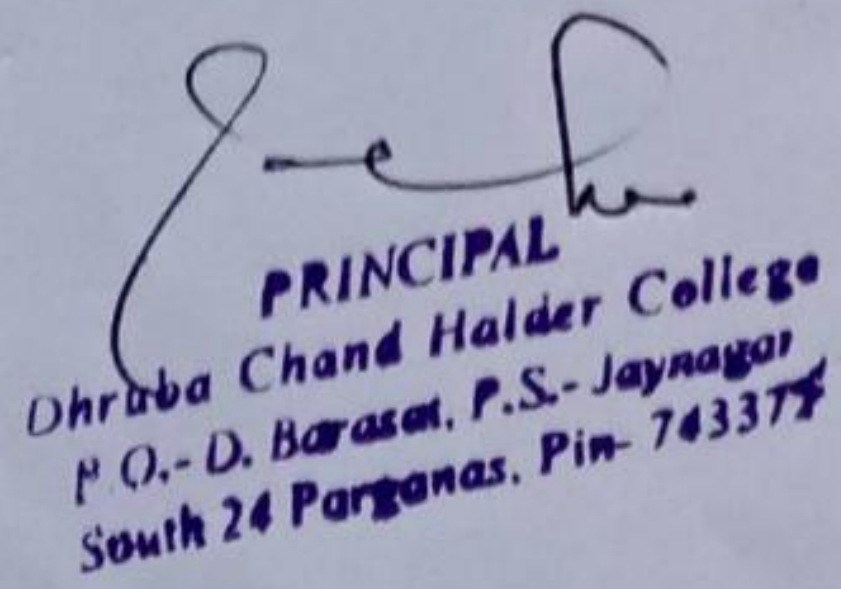 PRINCIPAL
Dhruba Chand Halder College
P.O.- D. Barasat, P.S.- Jaynagar
South 24 Parganas, Pin-